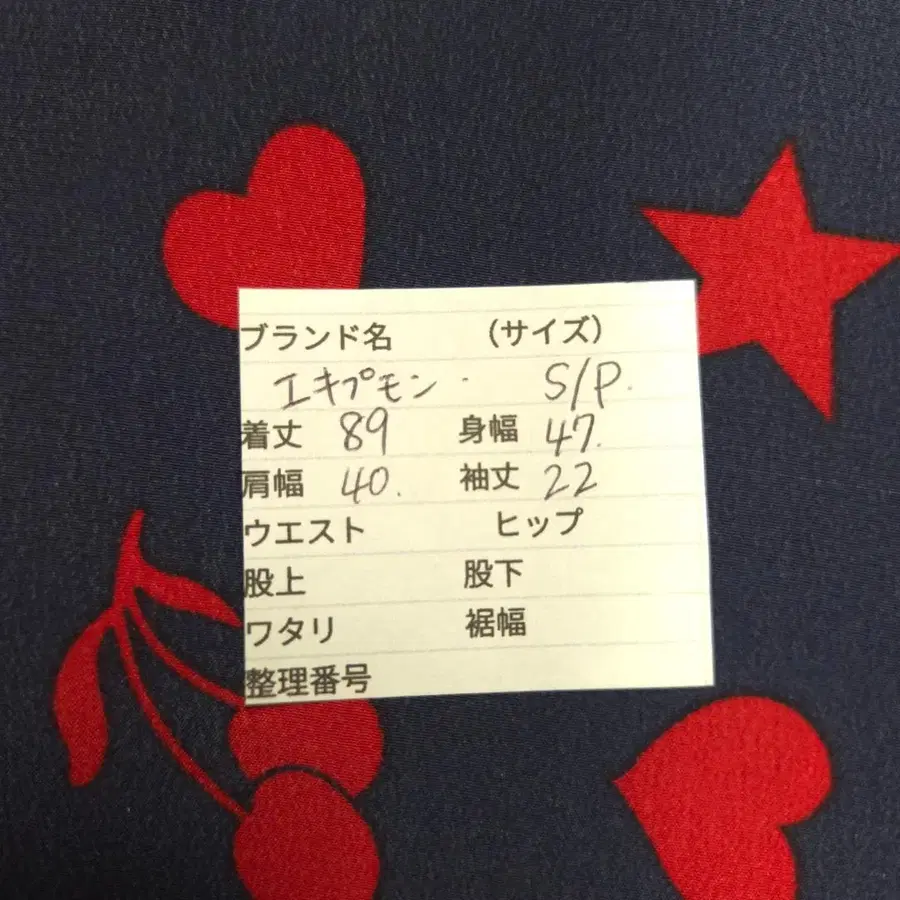 ブランド名 （サイズ）
エキプモン. S/P.
着丈 89 身幅 47.
肩幅 40. 袖丈 22
ウエスト ヒップ
股上 股下
ワタリ 裾幅
整理番号